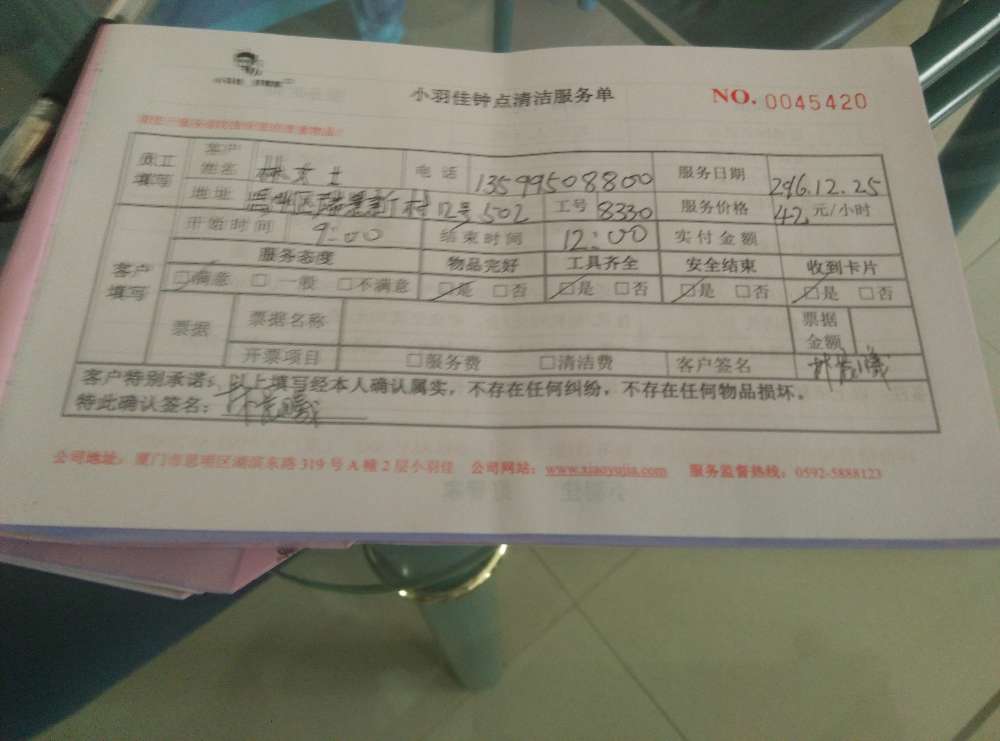 小羽佳钟点清洁服务单 NO. 0045420
员工填写 客户姓名 林女士 电话 13599508800 服务日期 2016.12.25
地址 12号502 工号 8330 服务价格 42.元/小时
客户填写 开始时间 9:00 结束时间 12:00 实付金额
服务态度 物品完好 工具齐全 安全结束 收到卡片
□满意 □一般 □不满意 □是 □否 □是 □否 □是 □否 □是 □否
票据 票据名称 票据金额
开票项目 □服务费 □清洁费 客户签名
客户特别承诺:以上填写经本人确认属实,不存在任何纠纷,不存在任何物品损坏。
特此确认签名:
公司地址:厦门市思明区湖滨东路319号A幢2层小羽佳 公司网站:www.xiaoyujia.com 服务监督热线:0592-5888123